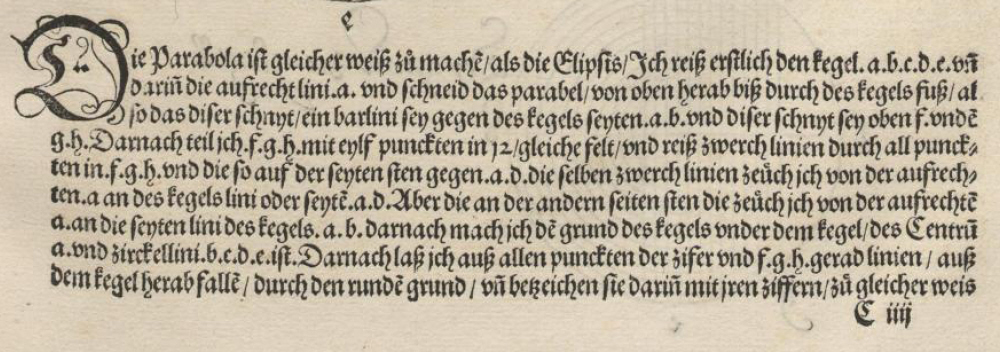 e
Die Parabola ist gleicher weiß zů machẽ/als die Elipsis/Jch reiß erstlich den kegel.a.b.c.d.e.vñ
dariñ die aufrecht lini.a. vnd schneid das parabel/von oben herab biß durch des kegels fuß/al
so das diser schnyt/ein barlini sey gegen des kegels seyten.a.b.vnd diser schnyt sey oben f.vndẽ
g.h.Darnach teil jch.f.g.h.mit eylf punckten in 12/gleiche felt/vnd reiß zwerch linien durch all punck⸗
ten in.f.g.h.vnd die so auf der seyten sten gegen.a.d.die selben zwerch linien zeüch jch von der aufrech⸗
ten.a an des kegels lini oder seytẽ.a.d.Aber die an der andern seiten sten die zeüch jch von der aufrechtẽ
a.an die seyten lini des kegels. a.b. darnach mach jch dẽ grund des kegels vnder dem kegel/des Centrũ
a.vnd zirckellini.b.c.d.e.ist.Darnach laß jch auß allen punckten der zifer vnd f.g.h.gerad linien / auß
dem kegel herab fallẽ / durch den rundẽ grund / vñ betzeichen sie dariñ mit jren ziffern/zů gleicher weis
C iiij